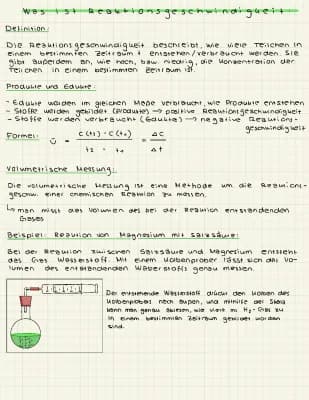 Was ist Reaktionsgeschwindigkeit
Definition:
Die Reaktionsgeschwindigkeit beschreibt, wie viele Teilchen in
einem bestimmten Zeitraum t entstehen/verbraucht werden. Sie
gibt außerdem an, wie hoch, bzw. niedrig, die Konzentration der
Teilchen in einem bestimmten Zeitraum ist.
Produkte und Edukte:
- Edukte werden im gleichen Maße verbraucht, wie Produkte entstehen
- Stoffe werden gebildet (Produkte) → positive Reaktionsgeschwindigkeit
- Stoffe werden verbraucht (Edukte) → negative Reaktions-
geschwindigkeit
Formel: v̄ = c(t₁) - c(t₀) / t₂ - t₀ = Δc / Δt
Volumetrische Messung:
Die volumetrische Messung ist eine Methode um die Reaktions-
geschw. einer chemischen Reaktion zu messen.
↳ man misst das Volumen des bei der Reaktion entstandenden
Gases
Beispiel: Reaktion von Magnesium mit Salzsäure:
Bei der Reaktion zwischen Salzsäure und Magnesium entsteht
das Gas Wasserstoff. Mit einem Kolbenprober lässt sich das Vo-
lumen des entstandenden Wasserstoffs genau messen.
Der entstehende Wasserstoff drückt den Kolben des
Kolbenprobers nach außen, und mithilfe der Skala
kann man genau ablesen, wie viel H₂-Gas
in einem bestimmten Zeitraum gebildet worden
sind.